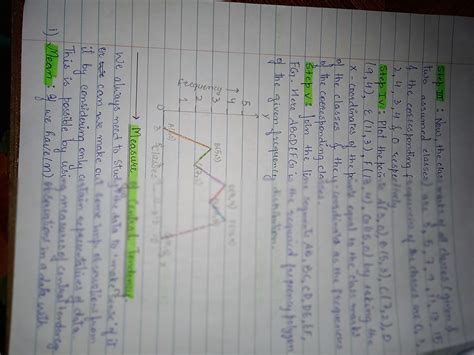 Step III: Now, the class marks of all classes (given &
two assumed classes) are
& the corresponding frequencies of the classes are 0, 3,
2, 4, 3, 4 & 0 respectively.
Step IV: Plot the points A(1, 0), B(3, 3), C(5, 2), D
x-coordinates of the points equal to the class marks
of the classes & they coordinates as the frequencies
of the corresponding classes.
Step V: Join the line segments AB, BC, CD, DE, EF,
FG. Here ABCDEFG is the required frequency polygon
of the given frequency distribution.
Y
5
4
3
2
1
0
Frequency
→ Measure of Central Tendency
We always need to study the data to 'make sense' of it
or we can make out some imp. observations from
it by considering only certain representatives of data.
This is possible by using measures of central tendency
1) Mean: If we have (n) observations in a data with